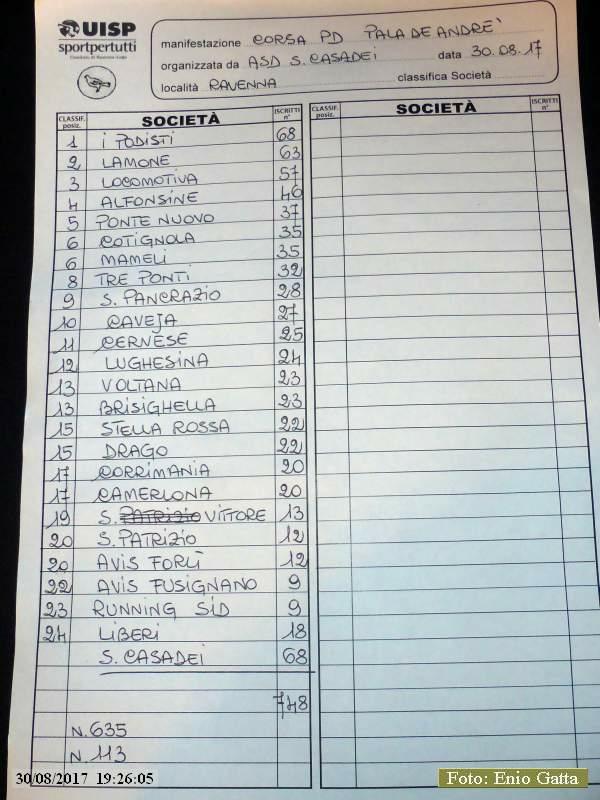 UISP
sportpertutti
manifestazione CORSA PD PALA DE ANDRE'
organizzata da ASD S. CASADEI data 30.08.17
località RAVENNA classifica Società
CLASSIF. posiz. SOCIETÀ ISCRITTI n° CLASSIF. posiz. SOCIETÀ ISCRITTI n°
1 I PODISTI 68
2 LAMONE 63
3 LOCOMOTIVA 57
4 ALFONSINE 46
5 PONTE NUOVO 37
6 COTIGNOLA 35
6 MAMELI 35
8 TRE PONTI 32
9 S. PANCRAZIO 28
10 CAVEJA 27
11 CERVESE 25
12 LUGHESINA 24
13 VOLTANA 23
13 BRISIGHELLA 23
15 STELLA ROSSA 22
15 DRAGO 22
17 CORRIMANIA 20
17 CAMERLONA 20
19 S. PATRIZIO VITTORE 13
20 S. PATRIZIO 12
20 AVIS FORLÌ 12
22 AVIS FUSIGNANO 9
23 RUNNING SID 9
24 LIBERI 18
S. CASADEI 68
748
N. 635
N. 113
30/08/2017 19:26:05
Foto: Enio Gatta